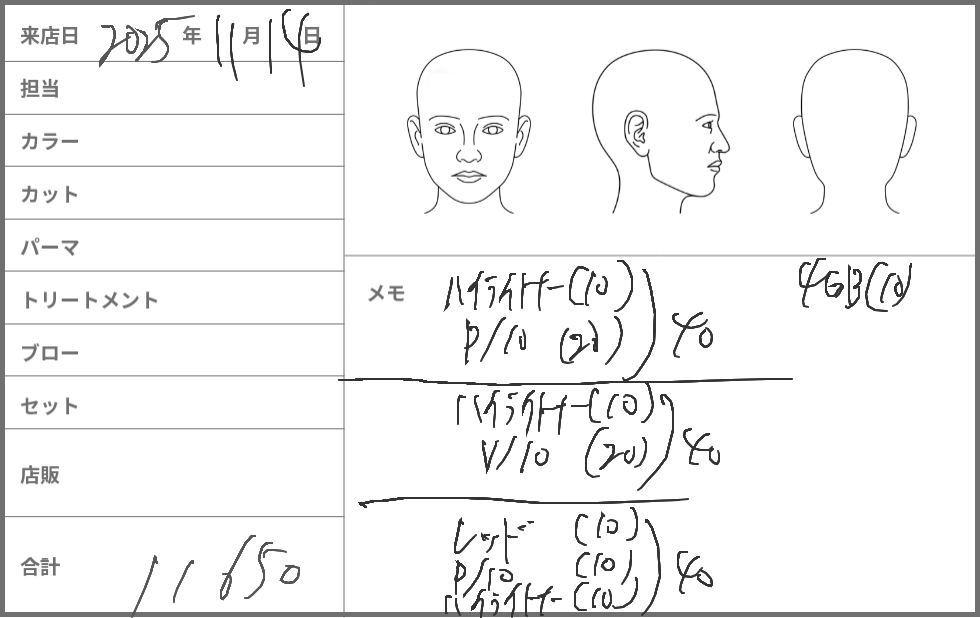 来店日 2025年 11月 14日
担当
カラー
カット
パーマ
トリートメント
ブロー
セット
店販
合計 11650
メモ
ハイライナー(10)
P/10 (20) 40
4GB(10)
ハイライナー(10)
V/10 (20) 40
レッド (10)
P/10 (10)
ハイライナー (10) 40